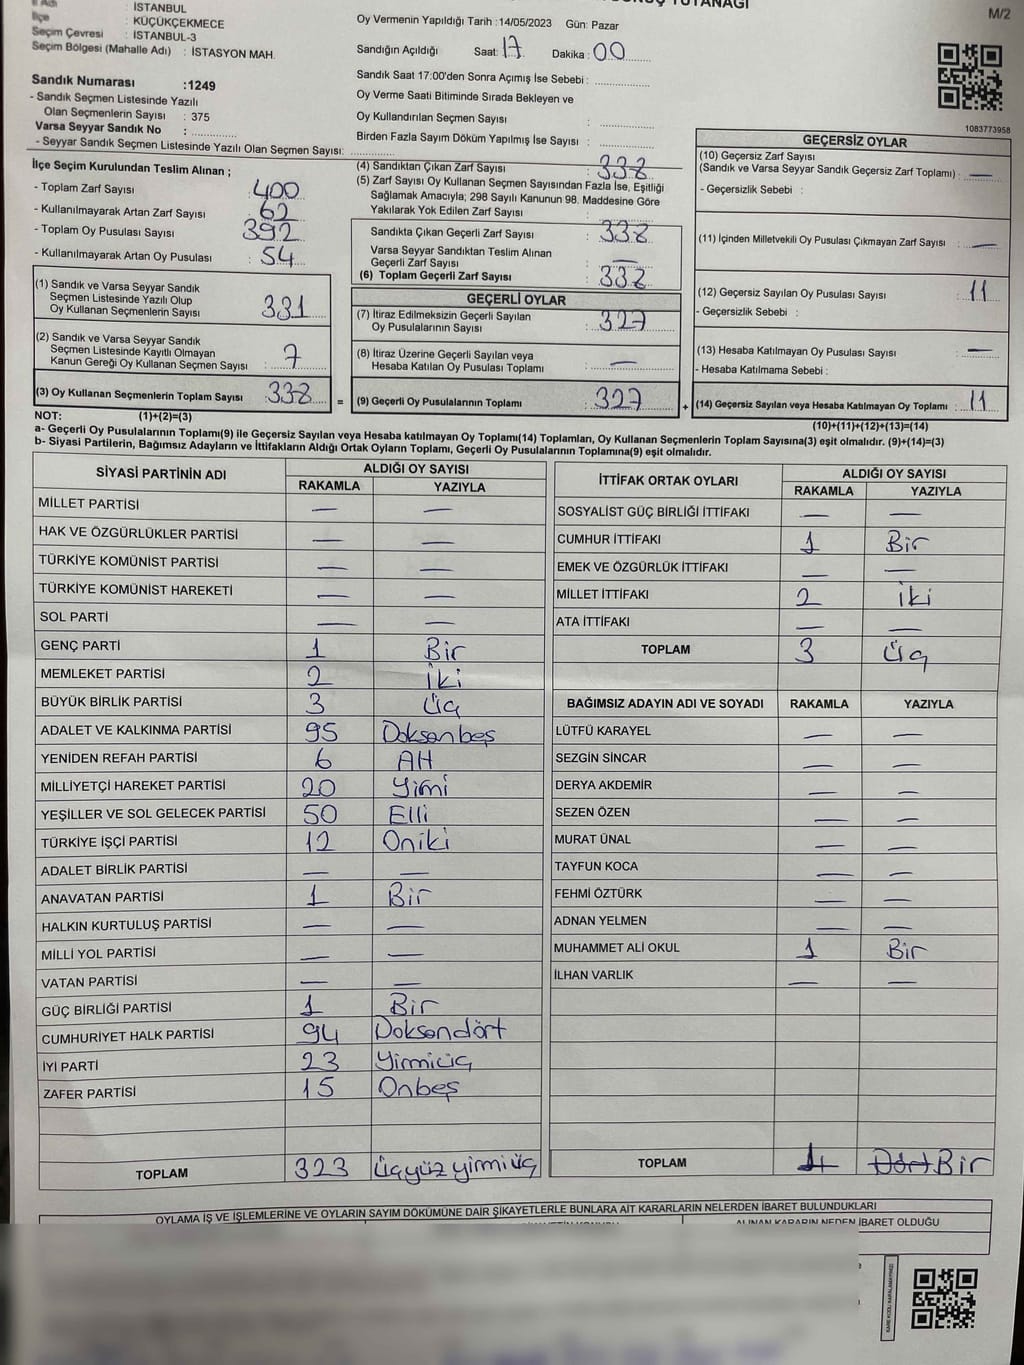 M/2
İSTANBUL
İlçe : KÜÇÜKÇEKMECE
Seçim Çevresi : İSTANBUL-3
Seçim Bölgesi (Mahalle Adı) : İSTASYON MAH.
Oy Vermenin Yapıldığı Tarih :14/05/2023 Gün: Pazar
Sandığın Açıldığı Saat: 17 Dakika : 00
Sandık Saat 17:00'den Sonra Açımış İse Sebebi :
Oy Verme Saati Bitiminde Sırada Bekleyen ve
Oy Kullandırılan Seçmen Sayısı :
Birden Fazla Sayım Döküm Yapılmış İse Sayısı :
Sandık Numarası :1249
- Sandık Seçmen Listesinde Yazılı
Olan Seçmenlerin Sayısı : 375
Varsa Seyyar Sandık No :
- Seyyar Sandık Seçmen Listesinde Yazılı Olan Seçmen Sayısı:
1083773958
İlçe Seçim Kurulundan Teslim Alınan ;
- Toplam Zarf Sayısı : 400
- Kullanılmayarak Artan Zarf Sayısı : 62
- Toplam Oy Pusulası Sayısı : 392
- Kullanılmayarak Artan Oy Pusulası : 54
(1) Sandık ve Varsa Seyyar Sandık
Seçmen Listesinde Yazılı Olup
Oy Kullanan Seçmenlerin Sayısı : 331
(2) Sandık ve Varsa Seyyar Sandık
Seçmen Listesinde Kayıtlı Olmayan
Kanun Gereği Oy Kullanan Seçmen Sayısı : 7
(3) Oy Kullanan Seçmenlerin Toplam Sayısı : 338
(4) Sandıktan Çıkan Zarf Sayısı : 338
(5) Zarf Sayısı Oy Kullanan Seçmen Sayısından Fazla İse, Eşitliği
Sağlamak Amacıyla; 298 Sayılı Kanunun 98. Maddesine Göre
Yakılarak Yok Edilen Zarf Sayısı :
Sandıkta Çıkan Geçerli Zarf Sayısı : 338
Varsa Seyyar Sandıktan Teslim Alınan
Geçerli Zarf Sayısı : —
(6) Toplam Geçerli Zarf Sayısı : 338
GEÇERLİ OYLAR
(7) İtiraz Edilmeksizin Geçerli Sayılan
Oy Pusulalarının Sayısı : 327
(8) İtiraz Üzerine Geçerli Sayılan veya
Hesaba Katılan Oy Pusulası Toplamı : —
= (9) Geçerli Oy Pusulalarının Toplamı : 327
GEÇERSİZ OYLAR
(10) Geçersiz Zarf Sayısı
(Sandık ve Varsa Seyyar Sandık Geçersiz Zarf Toplamı) : —
- Geçersizlik Sebebi :
(11) İçinden Milletvekili Oy Pusulası Çıkmayan Zarf Sayısı : —
(12) Geçersiz Sayılan Oy Pusulası Sayısı : 11
- Geçersizlik Sebebi :
(13) Hesaba Katılmayan Oy Pusulası Sayısı : —
- Hesaba Katılmama Sebebi :
+ (14) Geçersiz Sayılan veya Hesaba Katılmayan Oy Toplamı : 11
NOT: (1)+(2)=(3)
(10)+(11)+(12)+(13)=(14)
a- Geçerli Oy Pusulasının Toplamı(9) ile Geçersiz Sayılan veya Hesaba katılmayan Oy Toplamı(14) Toplamları, Oy Kullanan Seçmenlerin Toplam Sayısına(3) eşit olmalıdır. (9)+(14)=(3)
b- Siyasi Partilerin, Bağımsız Adayların ve İttifakların Aldığı Ortak Oyların Toplamı, Geçerli Oy Pusulalarının Toplamına(9) eşit olmalıdır.
SİYASİ PARTİNİN ADI ALDIĞI OY SAYISI
RAKAMLA YAZIYLA
MİLLET PARTİSİ — —
HAK VE ÖZGÜRLÜKLER PARTİSİ — —
TÜRKİYE KOMÜNİST PARTİSİ — —
TÜRKİYE KOMÜNİST HAREKETİ — —
SOL PARTİ — —
GENÇ PARTİ 1 Bir
MEMLEKET PARTİSİ 2 İki
BÜYÜK BİRLİK PARTİSİ 3 Üç
ADALET VE KALKINMA PARTİSİ 95 Doksanbeş
YENİDEN REFAH PARTİSİ 6 Altı
MİLLİYETÇİ HAREKET PARTİSİ 20 Yirmi
YEŞİLLER VE SOL GELECEK PARTİSİ 50 Elli
TÜRKİYE İŞÇİ PARTİSİ 12 Oniki
ADALET BİRLİK PARTİSİ — —
ANAVATAN PARTİSİ 1 Bir
HALKIN KURTULUŞ PARTİSİ — —
MİLLİ YOL PARTİSİ — —
VATAN PARTİSİ — —
GÜÇ BİRLİĞİ PARTİSİ 1 Bir
CUMHURİYET HALK PARTİSİ 94 Doksandört
İYİ PARTİ 23 Yirmiüç
ZAFER PARTİSİ 15 Onbeş
TOPLAM 323 Üçyüz yirmi üç
İTTİFAK ORTAK OYLARI ALDIĞI OY SAYISI
RAKAMLA YAZIYLA
SOSYALİST GÜÇ BİRLİĞİ İTTİFAKI — —
CUMHUR İTTİFAKI 1 Bir
EMEK VE ÖZGÜRLÜK İTTİFAKI — —
MİLLET İTTİFAKI 2 İki
ATA İTTİFAKI — —
TOPLAM 3 Üç
BAĞIMSIZ ADAYIN ADI VE SOYADI RAKAMLA YAZIYLA
LÜTFÜ KARAYEL — —
SEZGİN SİNCAR — —
DERYA AKDEMİR — —
SEZEN ÖZEN — —
MURAT ÜNAL — —
TAYFUN KOCA — —
FEHMİ ÖZTÜRK — —
ADNAN YELMEN — —
MUHAMMET ALİ OKUL 1 Bir
İLHAN VARLIK — —
TOPLAM 1 Dört Bir
OYLAMA İŞ VE İŞLEMLERİNE VE OYLARIN SAYIM DÖKÜMÜNE DAİR ŞİKAYETLERLE BUNLARA AİT KARARLARIN NELERDEN İBARET BULUNDUKLARI
ALINAN KARARIN NEDEN İBARET OLDUĞU